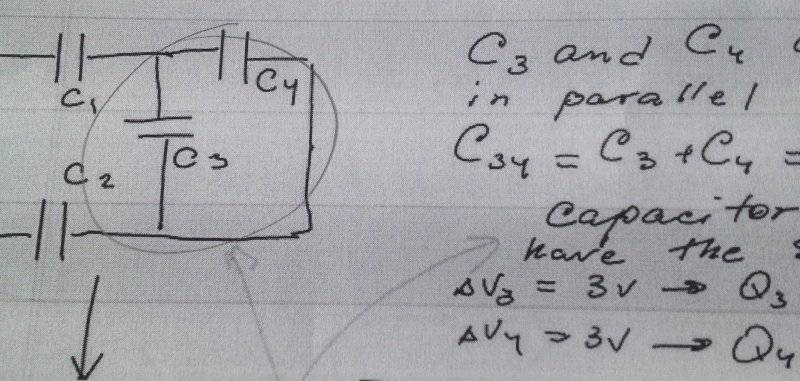 C1
C4
C3
C2
C3 and C4
in parallel
C34 = C3 + C4 =
Capacitor
have the
ΔV3 = 3V → Q3
ΔV4 = 3V → Q4